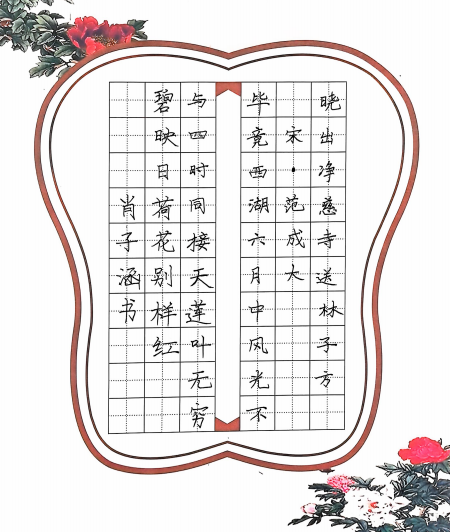 晓出净慈寺送林子方
宋·范成大
毕竟西湖六月中风光不
与四时同接天莲叶无穷
碧映日荷花别样红
肖子涵书